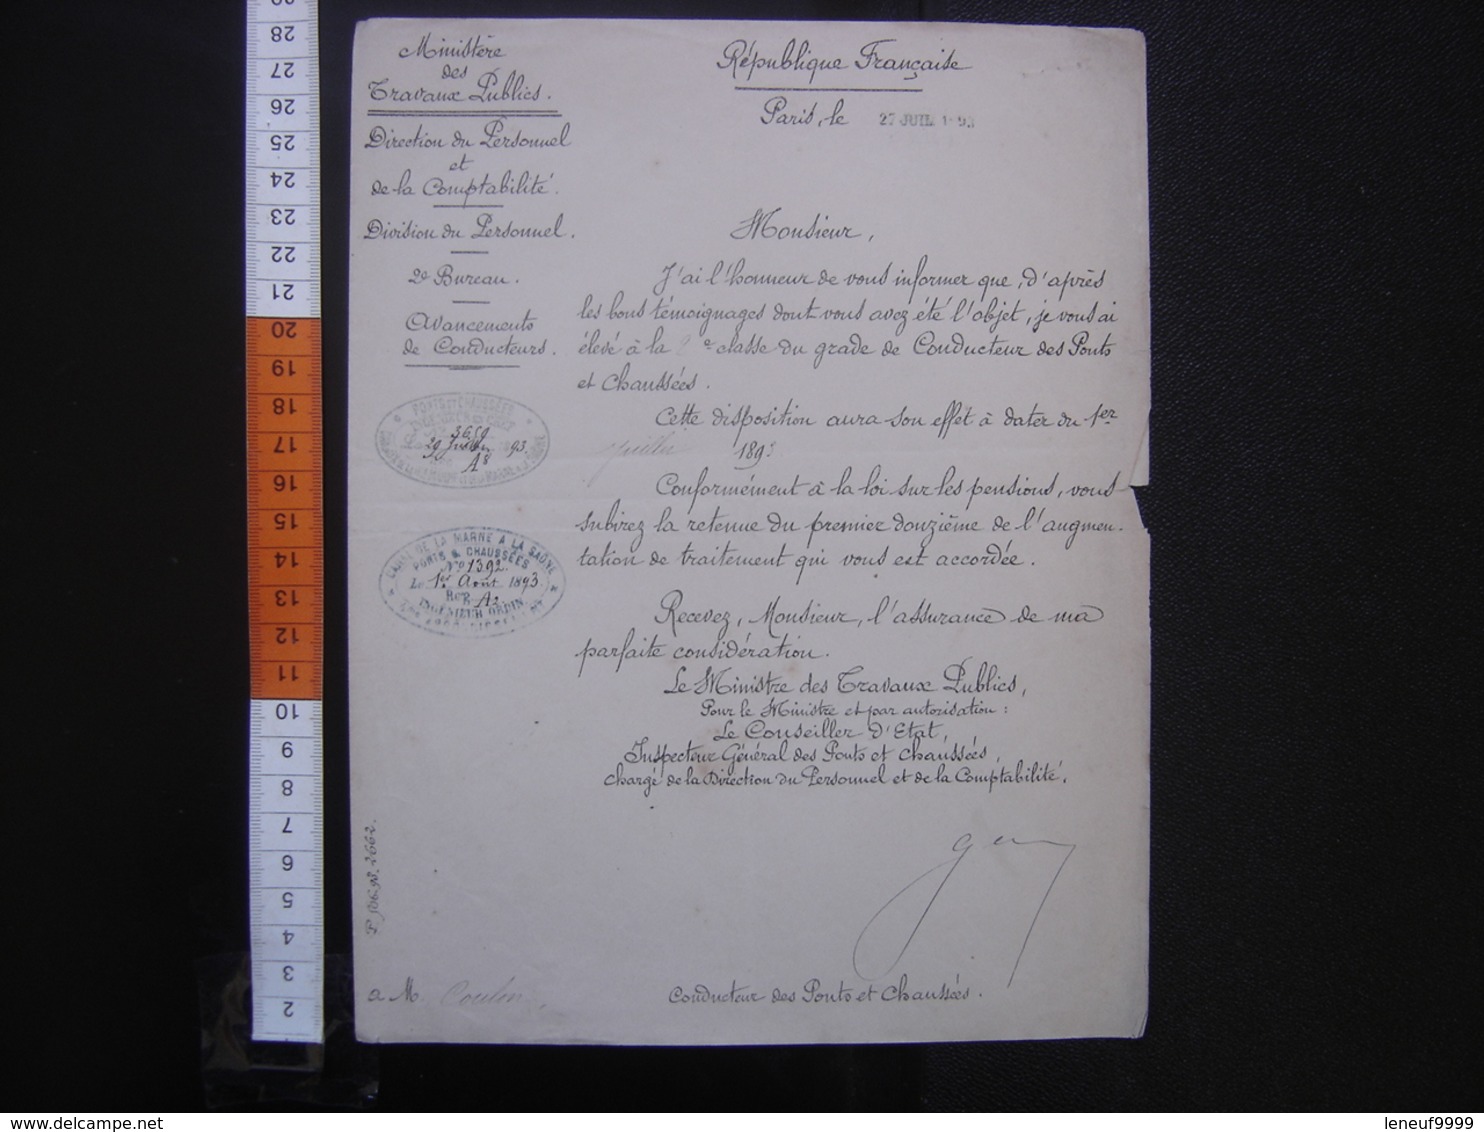 Ministère
des
Travaux Publics.
Direction du Personnel
et
de la Comptabilité.
Division du Personnel.
2e Bureau.
Avancements
de Conducteurs.
République Française
Paris, le 27 JUIL 1893
Monsieur,
J'ai l'honneur de vous informer que, d'après
les bons témoignages dont vous avez été l'objet, je vous ai
élevé à la 2e classe du grade de Conducteur des Ponts
et Chaussées.
Cette disposition aura son effet à dater du 1er
juillet 1893
Conformément à la loi sur les pensions, vous
subirez la retenue du premier douzième de l'augmen-
tation de traitement qui vous est accordée.
Recevez, Monsieur, l'assurance de ma
parfaite considération.
Le Ministre des Travaux Publics,
Pour le Ministre et par autorisation :
Le Conseiller d'Etat,
Inspecteur Général des Ponts et Chaussées,
chargé de la Direction du Personnel et de la Comptabilité.
a M. Coulon, Conducteur des Ponts et Chaussées.
PONTS ET CHAUSSÉES
INGÉNIEUR EN CHEF
3659
29 Juillet 1893.
A8
CANAL DE LA MARNE A LA SAÔNE
PONTS & CHAUSSÉES
No 1392
Le 1er Août 1893
Reg. A2
INGÉNIEUR ORDIN.
P. 50698.2662.
29
28
27
26
25
24
23
22
21
20
19
18
17
16
15
14
13
12
11
10
9
8
7
6
5
4
3
2
delcampe.net
leneuf9999